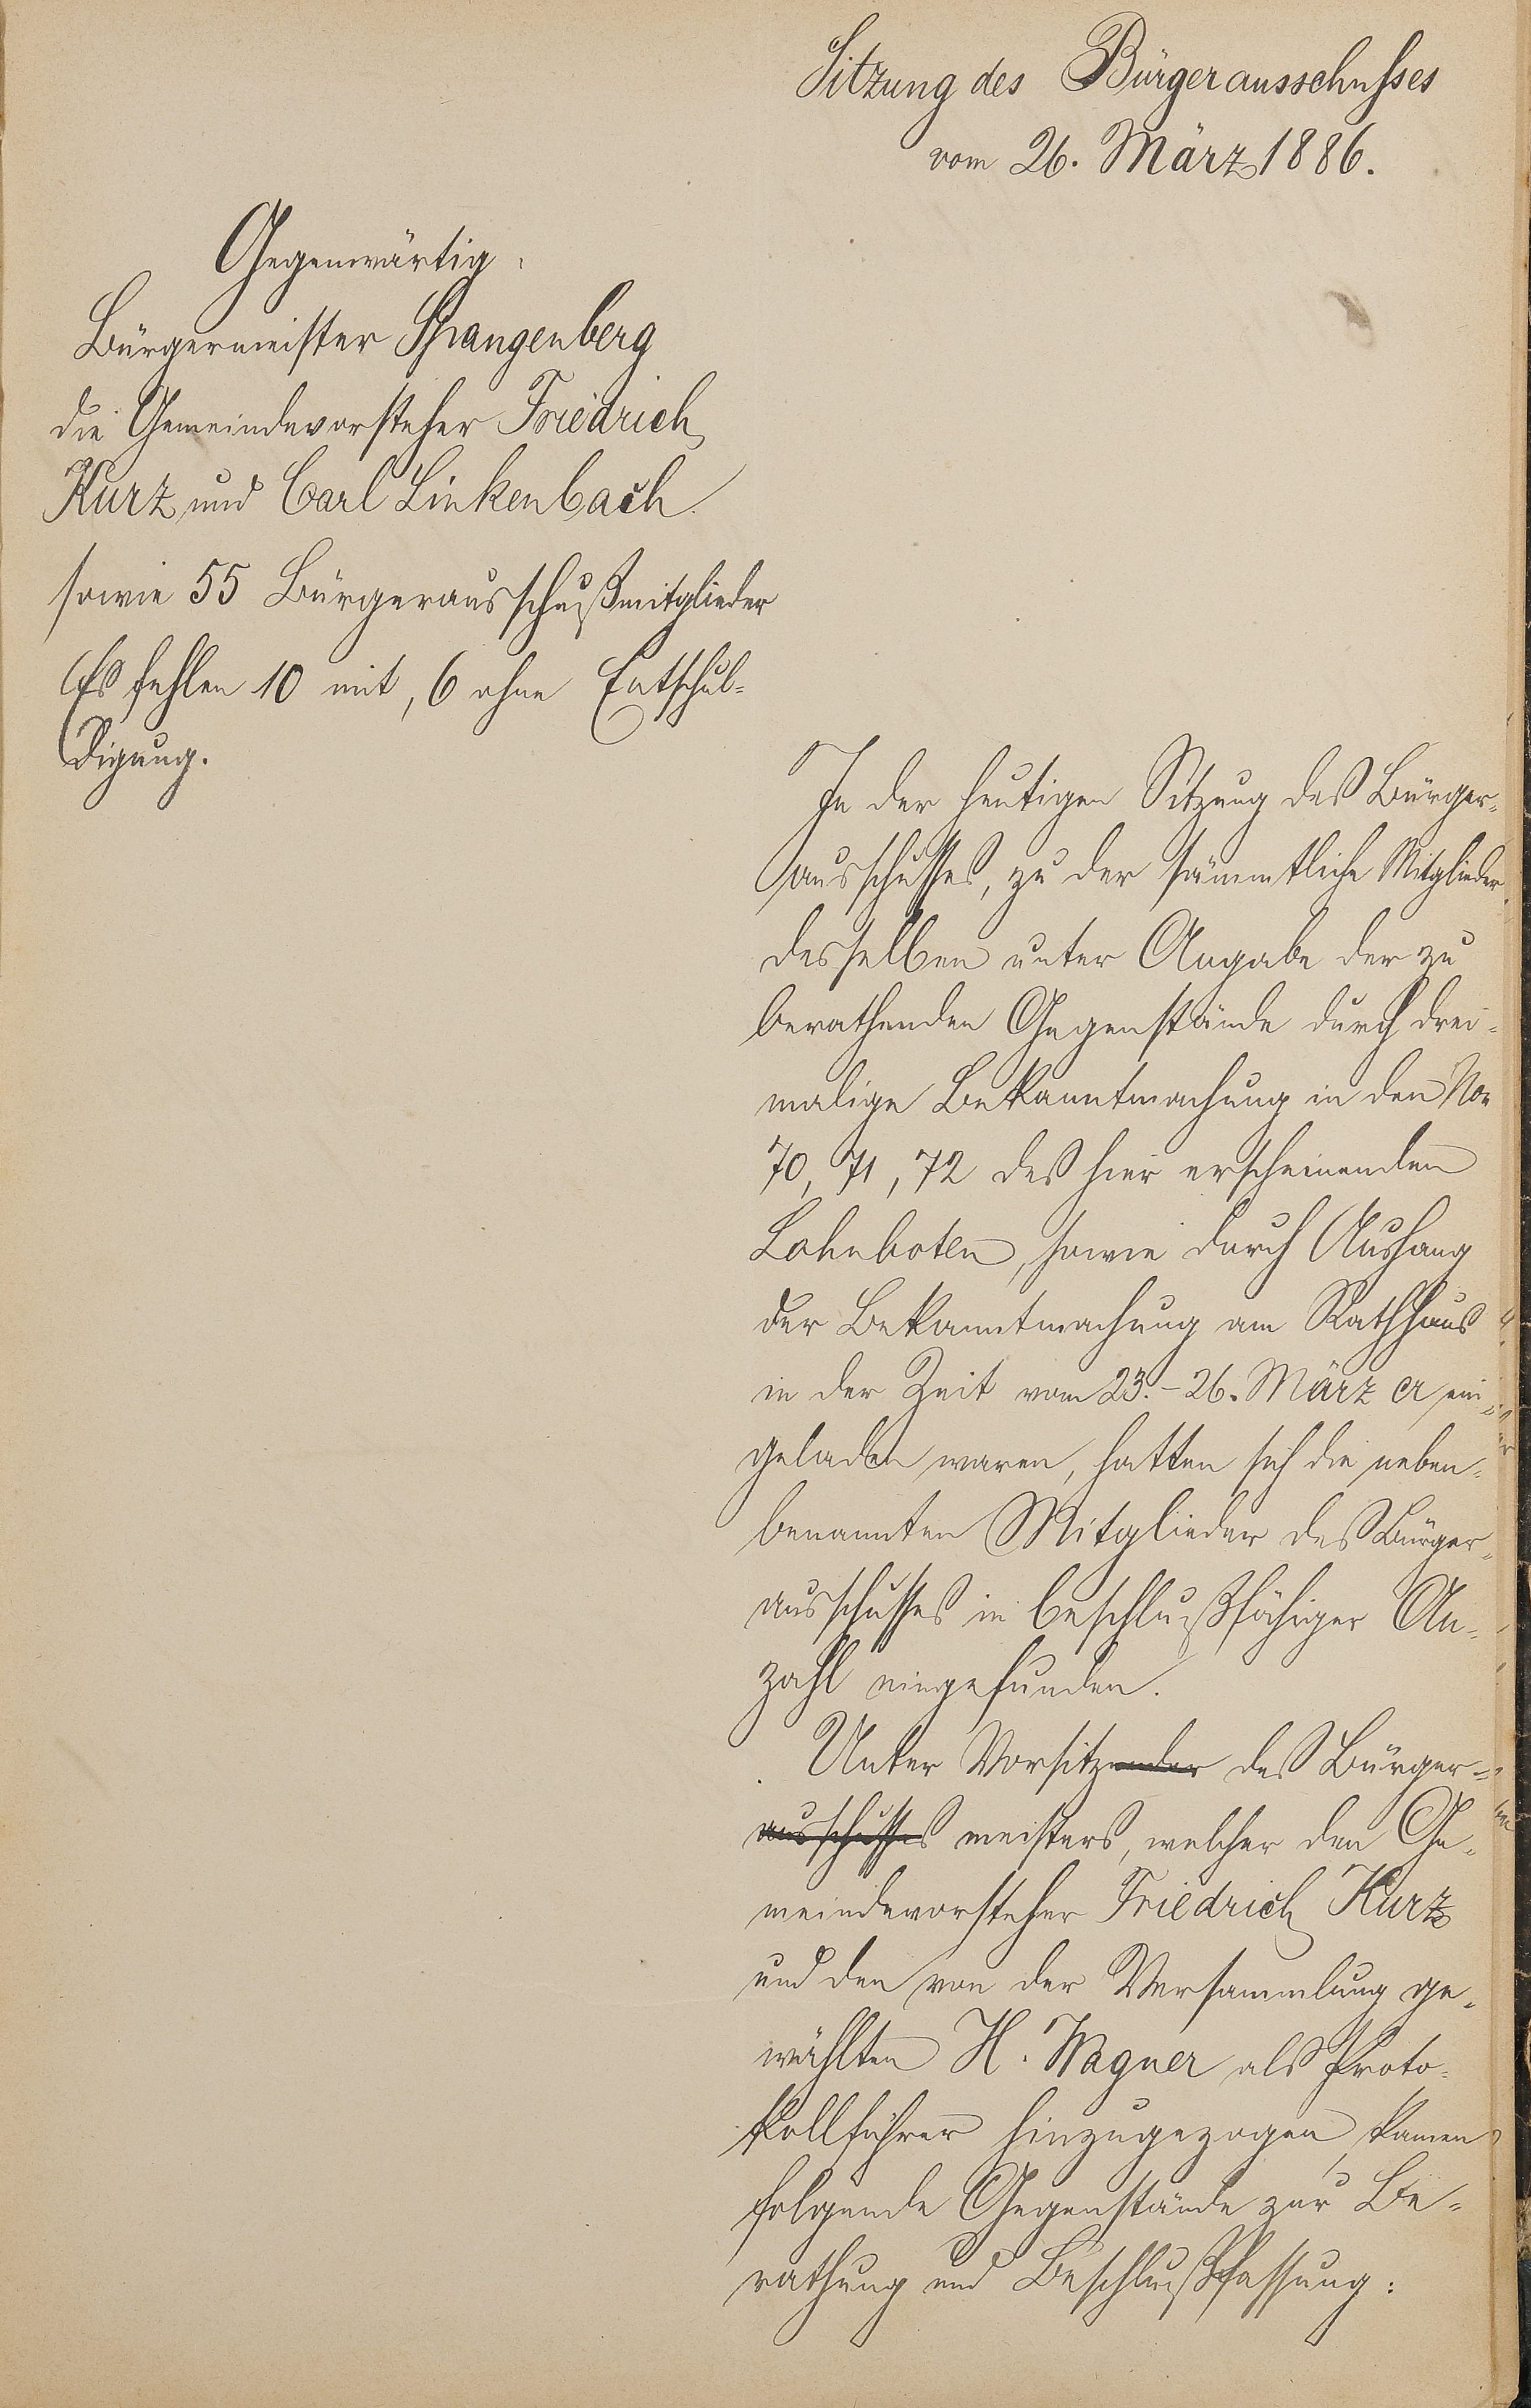 Sitzung des Bürgerausschusses
vom 26. März 1886.
Gegenwärtig:
Bürgermeister Spangenberg
die Gemeindevorsteher Friedrich
Kurz und Carl Linkenbach.
sowie 55 Bürgerausschußmitglieder
Es fehlen 10 mit, 6 ohne Entschul-
digung.
In der heutigen Sitzung des Bürger-
ausschusses, zu der sämmtliche Mitglieder
desselben unter Angabe der zu
berathenden Gegenstände durch drei-
malige Bekanntmachung in den Nor
70, 71, 72 des hier erscheinenden
Lahnboten, sowie durch Aushang
der Bekanntmachung am Rathhaus
in der Zeit vom 23.-26. März cr ein-
geladen waren, hatten sich die neben-
benannten Mitglieder des Bürger-
ausschusses in beschlußfähiger An-
zahl eingefunden.
Unter Vorsitzender des Bürger-
ausschusses meisters, welcher den Ge-
meindevorsteher Friedrich Kurz
und den von der Versammlung ge-
wählten H. Wagner als Proto-
kollführer hinzugezogen, kamen
folgende Gegenstände zur Be-
rathung und Beschlußfassung: